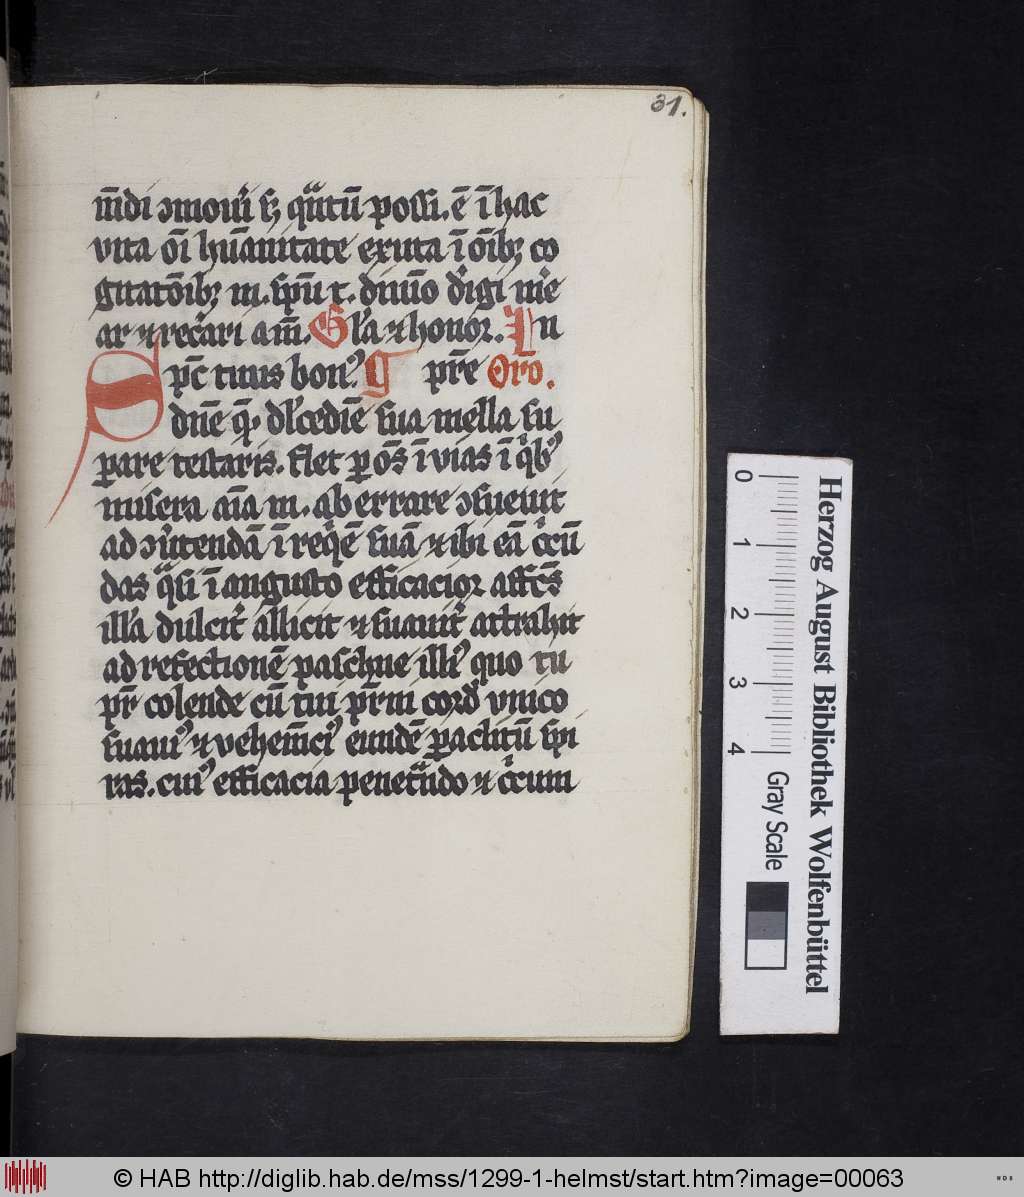 31.
m̄di ɔmoūi sꝫ qᷓntū possi. ē ī hac
vita oī hūanitate exuta ī oīb; co
gitatoīb; m. spū t. diuīo dīgi me
ar ⁊ recͥari am̄. Gl'a ⁊ honor. In
spc̄ tuus bonꝰ. pr̄e Oro.
dn̄e q̄ dl'cediē sua mella su
pare testaris. flet ꝑ os̄ ī vias ī qͥbꝰ
misera aīa m. ab errare ɔsueuit
ad ɔūtendā ī reqͥē suā ⁊ ibi eā cͥcū
das qᷓsi ī angusto efficacior affcs̄
ill'a dulcit̄ allicit ⁊ suauit̄ attrahit
ad refectionē paschue illiꝰ quo tu
pr̄ colende cū tui pr̄ni cord' vnico
suauiꝰ ⁊ vehem̄ciꝰ eundē ꝑaclitū spi
ras. cuiꝰ efficacia penetᷓndo ⁊ cͥcum
Herzog August Bibliothek Wolfenbüttel
0 1 2 3 4 Gray Scale
© HAB http://diglib.hab.de/mss/1299-1-helmst/start.htm?image=00063